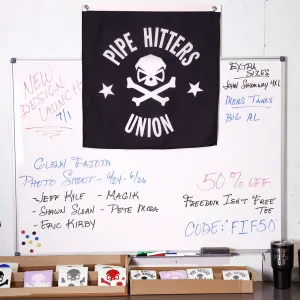 PIPE HITTERS
UNION
NEW
DESIGN
LAUNCH
7/1
EXTRA
SIZES
4XL
MENS TANKS
BIG AL
GLENN
PHOTO SHOOT - 6/24 - 6/26
- JEFF KYLE - MAGIK
- SHAWN SLOAN - PETE MORA
- ERIC KIRBY
50% OFF
FREEDOM ISN'T FREE
TEE
CODE: